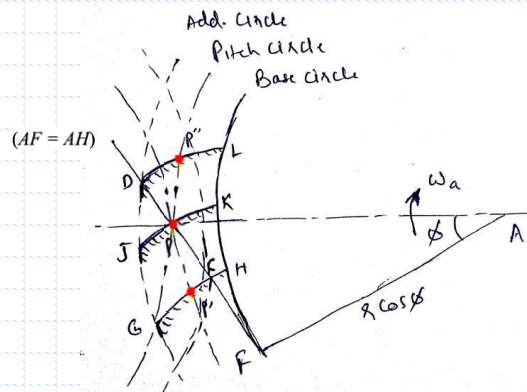 Add. Circle
Pitch Circle
Base Circle
(AF = AH)
P''
L
D
ωa
K
P
J
ϕ
A
C
H
P'
G
r cosϕ
F